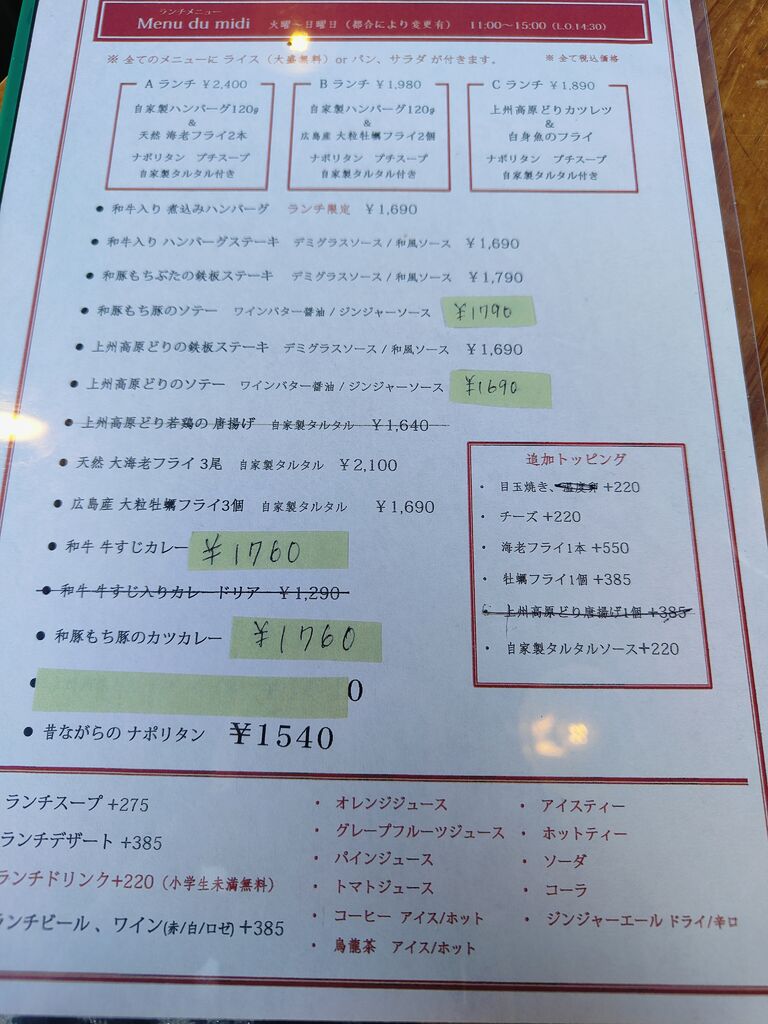 ランチメニュー
Menu du midi 火曜～日曜日（都合により変更有） 11:00～15:00（L.O.14:30）
※ 全てのメニューに ライス（大盛無料）or パン、サラダ が付きます。 ※ 全て税込価格
A ランチ ￥2,400
自家製ハンバーグ120g
&
天然 海老フライ2本
ナポリタン プチスープ
自家製タルタル付き
B ランチ ￥1,980
自家製ハンバーグ120g
&
広島産 大粒牡蠣フライ2個
ナポリタン プチスープ
自家製タルタル付き
C ランチ ￥1,890
上州高原どりカツレツ
&
白身魚のフライ
ナポリタン プチスープ
自家製タルタル付き
● 和牛入り 煮込みハンバーグ ランチ限定 ￥1,690
● 和牛入り ハンバーグステーキ デミグラスソース / 和風ソース ￥1,690
● 和豚もちぶたの鉄板ステーキ デミグラスソース / 和風ソース ￥1,790
● 和豚もち豚のソテー ワインバター醤油 / ジンジャーソース ￥1790
● 上州高原どりの鉄板ステーキ デミグラスソース / 和風ソース ￥1,690
● 上州高原どりのソテー ワインバター醤油 / ジンジャーソース ￥1690
● 上州高原どり若鶏の 唐揚げ 自家製タルタル ￥1,640
● 天然 大海老フライ 3尾 自家製タルタル ￥2,100
● 広島産 大粒牡蠣フライ3個 自家製タルタル ￥1,690
● 和牛 牛すじカレー ￥1760
● 和牛 牛すじ入りカレードリア ￥1,290
● 和豚もち豚のカツカレー ￥1760
● 0
● 昔ながらの ナポリタン ￥1540
追加トッピング
・ 目玉焼き、温度卵 +220
・ チーズ +220
・ 海老フライ1本 +550
・ 牡蠣フライ1個 +385
・ 上州高原どり唐揚げ1個 +385
・ 自家製タルタルソース+220
ランチスープ +275
ランチデザート +385
ランチドリンク+220（小学生未満無料）
ランチビール 、ワイン(赤/白/ロゼ) +385
・ オレンジジュース
・ グレープフルーツジュース
・ パインジュース
・ トマトジュース
・ コーヒー アイス/ホット
・ 烏龍茶 アイス/ホット
・ アイスティー
・ ホットティー
・ ソーダ
・ コーラ
・ ジンジャーエール ドライ/辛口